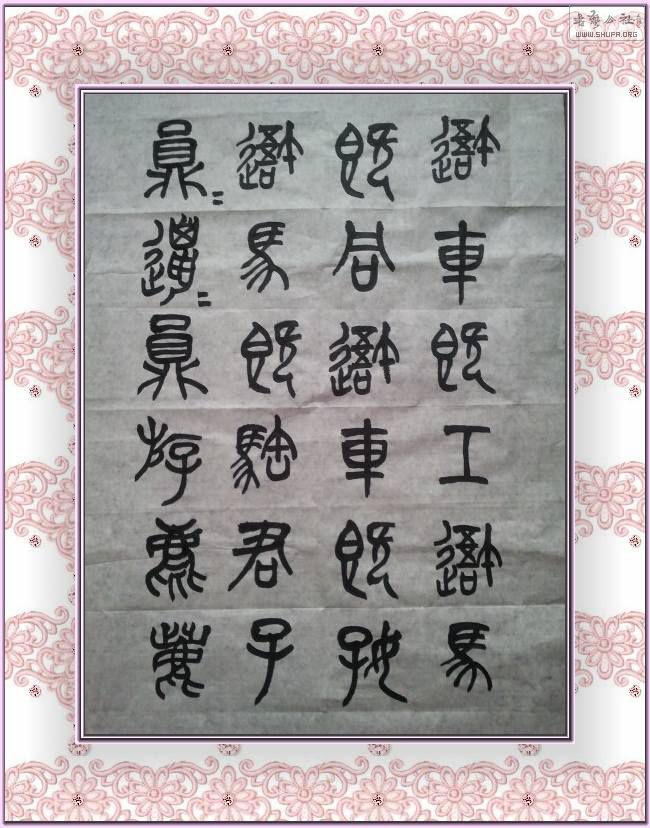 吾車既工吾馬
既同吾車既好
吾馬既𩣡君子
員=邋=員斿麀鹿
书艺公社
WWW.SHUFA.ORG